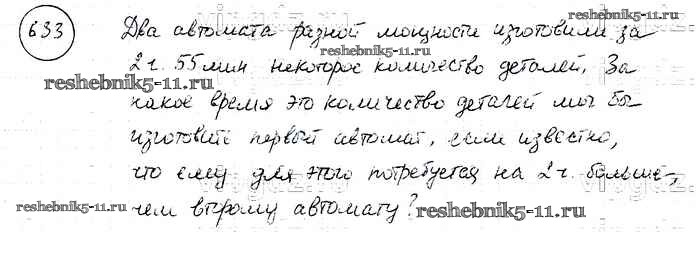 633
Два автомата разной мощности изготовили за
2 ч. 55 мин некоторое количество деталей. За
какое время это количество деталей мог бы
изготовить первый автомат, если известно,
что ему для этого потребуется на 2 ч. больше,
чем второму автомату?
reshebnik5-11.ru
reshebnik5-11.ru
reshebnik5-11.ru
reshebnik5-11.ru